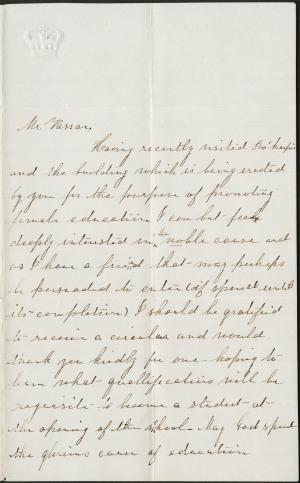 Mr. Vassar,
Having recently visited Po'keepsie
and the building which is being erected
by you for the purpose of promoting
female education I can but feel
deeply interested in the noble cause and
as I have a friend that may perhaps
be persuaded to enter (if spared until
its completion) I should be gratified
to receive a circular and would
thank you kindly for one - hoping to
learn what qualifications will be
requisite to become a student at
the opening of the school - May God speed
the glorious cause of education